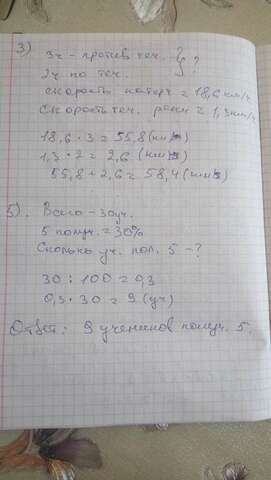 3) 3ч - против теч. } ?
2ч по теч.
скорость катера = 18,6 км/ч
Скорость теч. реки = 1,3 км/ч
18,6 · 3 = 55,8 (км)
1,3 · 2 = 2,6 (км)
55,8 + 2,6 = 58,4 (км)
5). Всего - 30 уч.
5 получ. = 30%
Сколько уч. пол. 5 - ?
30 : 100 = 0,3
0,3 · 30 = 9 (уч)
Ответ: 9 учеников получ. 5.